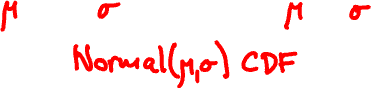 μ σ μ σ
Normal(μ,σ) CDF